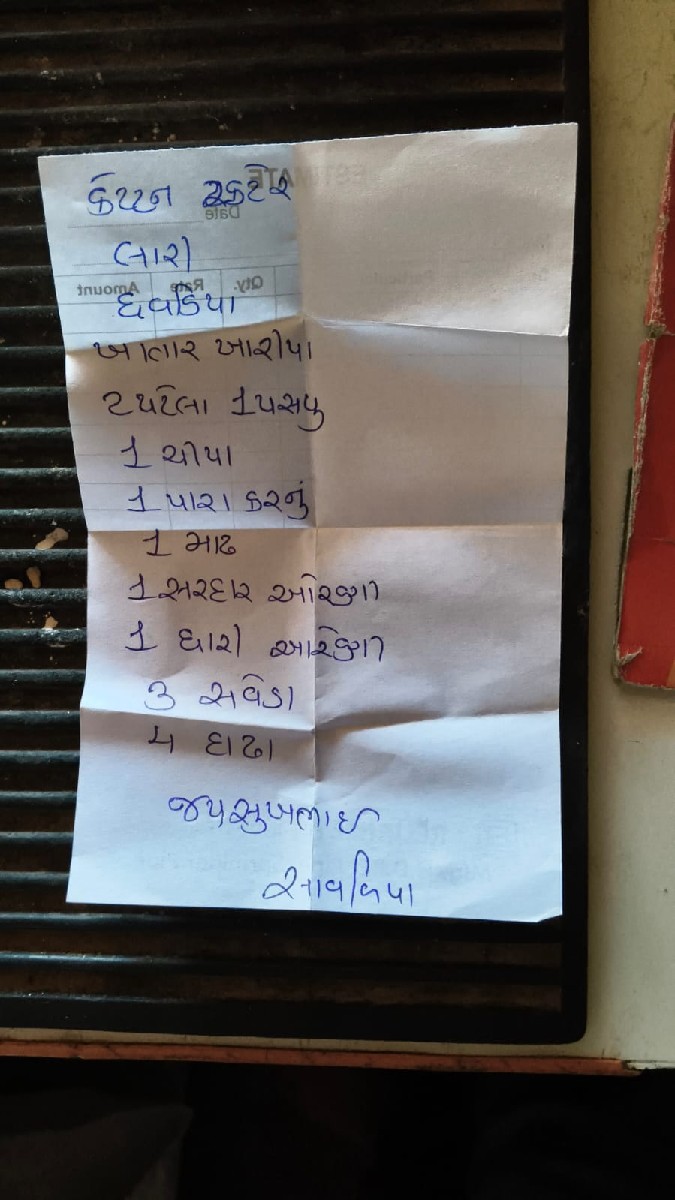 કેપ્ટન ટ્રેક્ટર
લારી
દેવડિયા
ખાતાર ખારીયા
ટપટેલા 1 પસપુ
1 ચીપા
1 પારા કરનું
1 માઢ
1 સરદાર ઓરણી
1 ધારી ઓરણી
3 સવેડા
4 દાઢા
જયસુખભાઈ
સાવલિયા
ESTIMATE
Date
Qty. Rate Amount